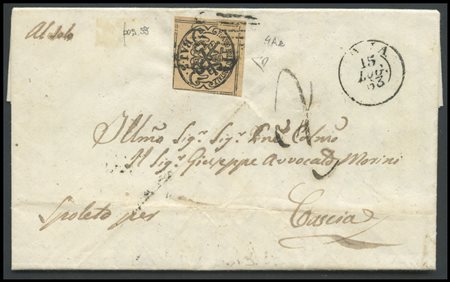 Al solo
pos. 53
4Aa
15
Lug.
63
2
Illmo Sigr. Sigr.
Il Sigr. Giuseppe Avvocato Morini
Spoleto per
Cascia